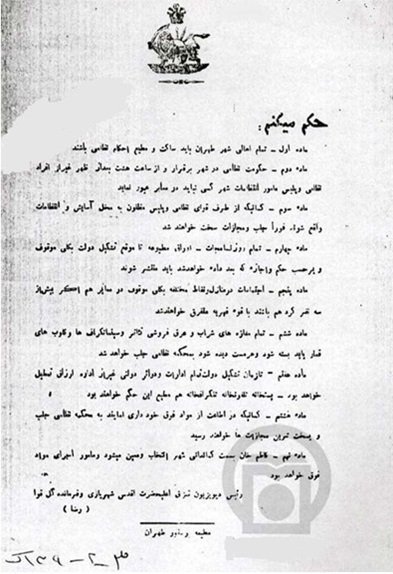 حکم میکنم:
ماده اول – تمام اهالی شهر طهران باید ساکت و مطیع احکام نظامی باشند
ماده دوم – حکومت نظامی در شهر برقرار و از ساعت هشت بعد از ظهر غیر از افراد
نظامی و پلیس مامور انتظامات شهر کسی نباید در معابر عبور نماید
ماده سوم – کسانیکه از طرف قوای نظامی و پلیس مظنون به مخل آسایش و انتظامات
واقع شوند فوراً جلب و مجازات سخت خواهند شد
ماده چهارم – تمام روزنامجات – اوراق مطبوعه تا موقع تشکیل دولت بکلی موقوف
و برحسب حکم و اجازه که بعد داده خواهد شد باید منتشر شوند
ماده پنجم – اجتماعات در منازل و نقاط مختلفه بکلی موقوف در معابر هم اگر بیش از
سه نفر گرد هم باشند با قوه قهریه متفرق خواهند شد
ماده ششم – تمام مغازه های شراب و عرق فروشی تئاتر و سینماتگرافها و کلوپ های
قمار باید بسته شود و هر مست دیده شود بمحکمه نظامی جلب خواهد شد
ماده هفتم – تا زمان تشکیل دولت تمام ادارات و دوائر دولتی غیر از اداره ارزاق تعطیل
خواهد بود – پستخانه تلفونخانه تلگرافخانه هم مطیع این حکم خواهند بود
ماده هشتم – کسانیکه در اطاعت از مواد فوق خود داری نمایند به محکمه نظامی جلب
و بسخت ترین مجازات ها خواهند رسید
ماده نهم – کاظم خان بسمت کماندانی شهر انتخاب و معین میشود و مامور اجرای مواد
فوق خواهد بود
رئیس دیویزیون قزاق اعلیحضرت اقدس شهریاری و فرمانده کل قوا
(رضا)
مطبعه طهران